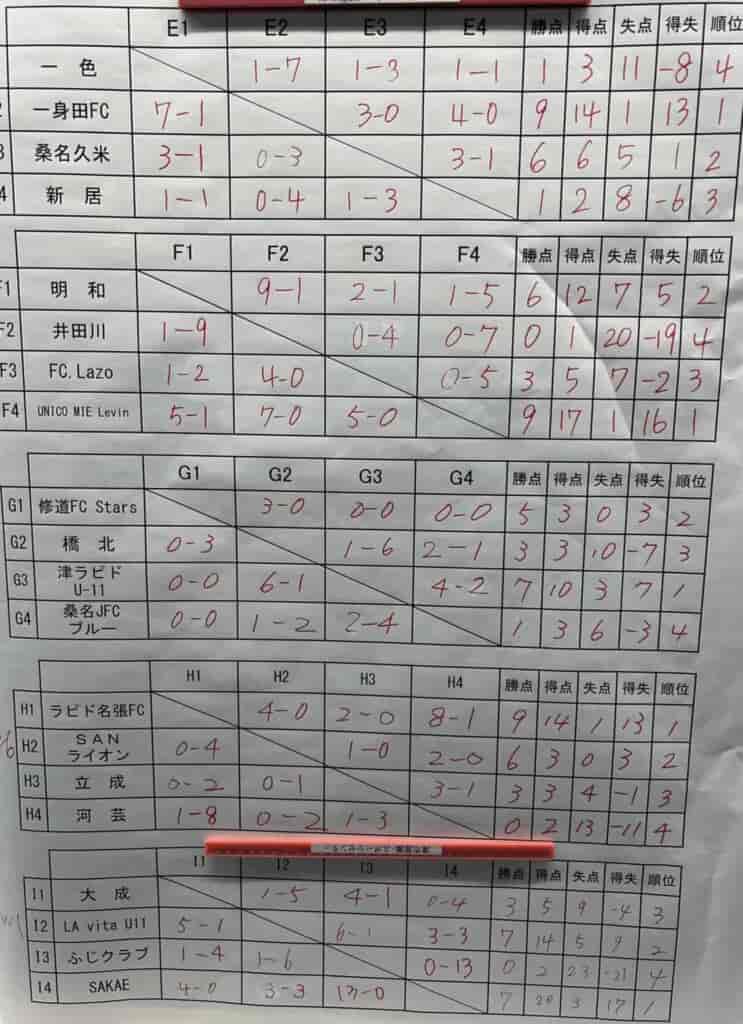 E1 E2 E3 E4 勝点 得点 失点 得失 順位
一色 1-7 1-3 1-1 1 3 11 -8 4
2 一身田FC 7-1 3-0 4-0 9 14 1 13 1
3 桑名久米 3-1 0-3 3-1 6 6 5 1 2
4 新居 1-1 0-4 1-3 1 2 8 -6 3
F1 F2 F3 F4 勝点 得点 失点 得失 順位
F1 明和 9-1 2-1 1-5 6 12 7 5 2
F2 井田川 1-9 0-4 0-7 0 1 20 -19 4
F3 FC.Lazo 1-2 4-0 0-5 3 5 7 -2 3
F4 UNICO MIE Levin 5-1 7-0 5-0 9 17 1 16 1
G1 G2 G3 G4 勝点 得点 失点 得失 順位
G1 修道FC Stars 3-0 0-0 0-0 5 3 0 3 2
G2 橋北 0-3 1-6 2-1 3 3 10 -7 3
G3 津ラピド U-11 0-0 6-1 4-2 7 10 3 7 1
G4 桑名JFC ブルー 0-0 1-2 2-4 1 3 6 -3 4
H1 H2 H3 H4 勝点 得点 失点 得失 順位
H1 ラピド名張FC 4-0 2-0 8-1 9 14 1 13 1
H2 SAN ライオン 0-4 1-0 2-0 6 3 0 3 2
H3 立成 0-2 0-1 3-1 3 3 4 -1 3
H4 河芸 1-8 0-2 1-3 0 2 13 -11 4
I1 I2 I3 I4 勝点 得点 失点 得失 順位
I1 大成 1-5 4-1 0-4 3 5 9 -4 3
I2 LA vita U11 5-1 6-1 3-3 7 14 5 9 2
I3 ふじクラブ 1-4 1-6 0-13 0 2 23 -21 4
I4 SAKAE 4-0 3-3 13-0 7 20 3 17 1